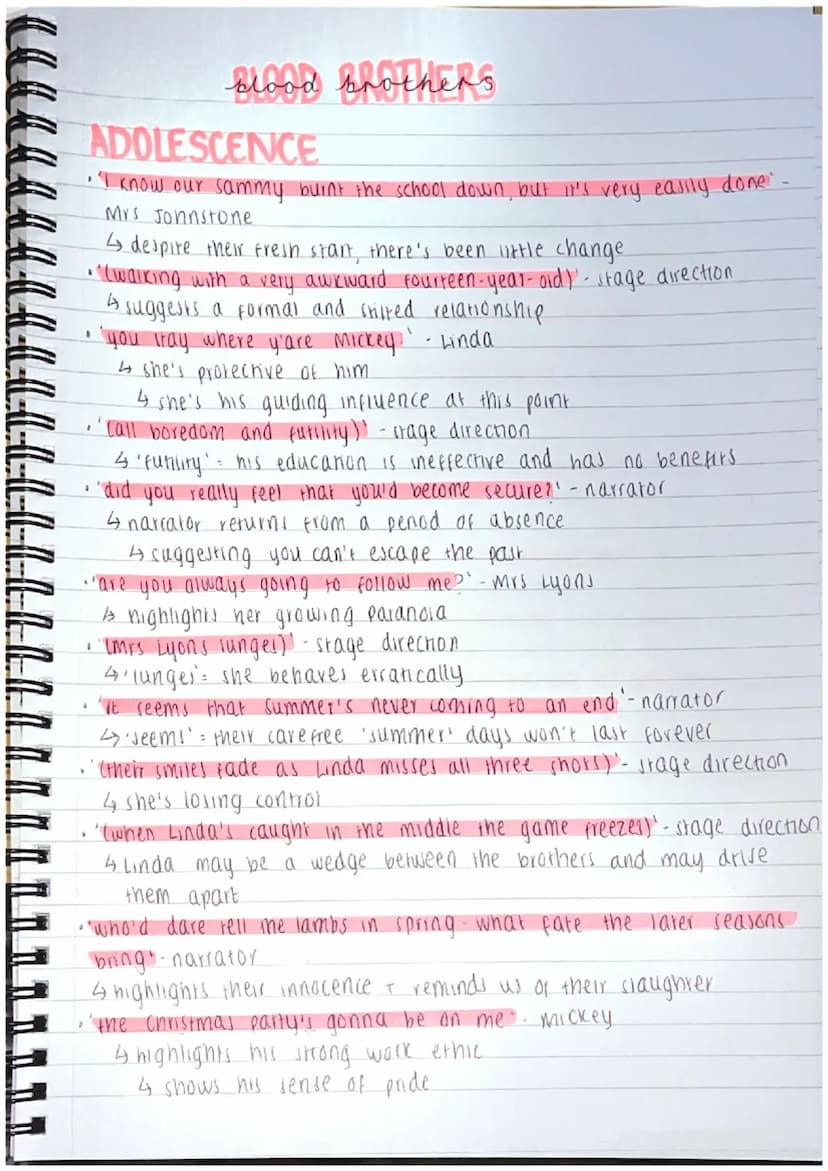 BLOOD BROTHERS
blood brothers
ADOLESCENCE
• 'I know our sammy burnt the school down, but it's very easily done' -
Mrs Johnstone
↳ despite their fresh start, there's been little change
• '(walking with a very awkward fourteen-year-old)' - stage direction
↳ suggests a formal and stilted relationship
• 'you stay where y'are Mickey' - Linda
↳ she's protective of him
↳ she's his guiding influence at this point
• '(all boredom and futility)' - stage direction
↳ 'futility' = his education is ineffective and has no benefits
• 'did you really feel that you'd become secure?' - narrator
↳ narrator returns from a period of absence
↳ suggesting you can't escape the past
• 'are you always going to follow me?' - Mrs Lyons
↳ highlights her growing paranoia
• '(Mrs Lyons lunges)' - stage direction
↳ 'lunges' = she behaves erratically
• 'it seems that summer's never coming to an end' - narrator
↳ 'seems' = their carefree 'summer' days won't last forever
• '(their smiles fade as Linda misses all three shots)' - stage direction
↳ she's losing control
• '(when Linda's caught in the middle the game freezes)' - stage direction
↳ Linda may be a wedge between the brothers and may drive
them apart
• 'who'd dare tell the lambs in spring. what fate the later seasons
bring' - narrator
↳ highlights their innocence + reminds us of their slaughter
• 'the Christmas party's gonna be on me' - Mickey
↳ highlights his strong work ethic
↳ shows his sense of pride